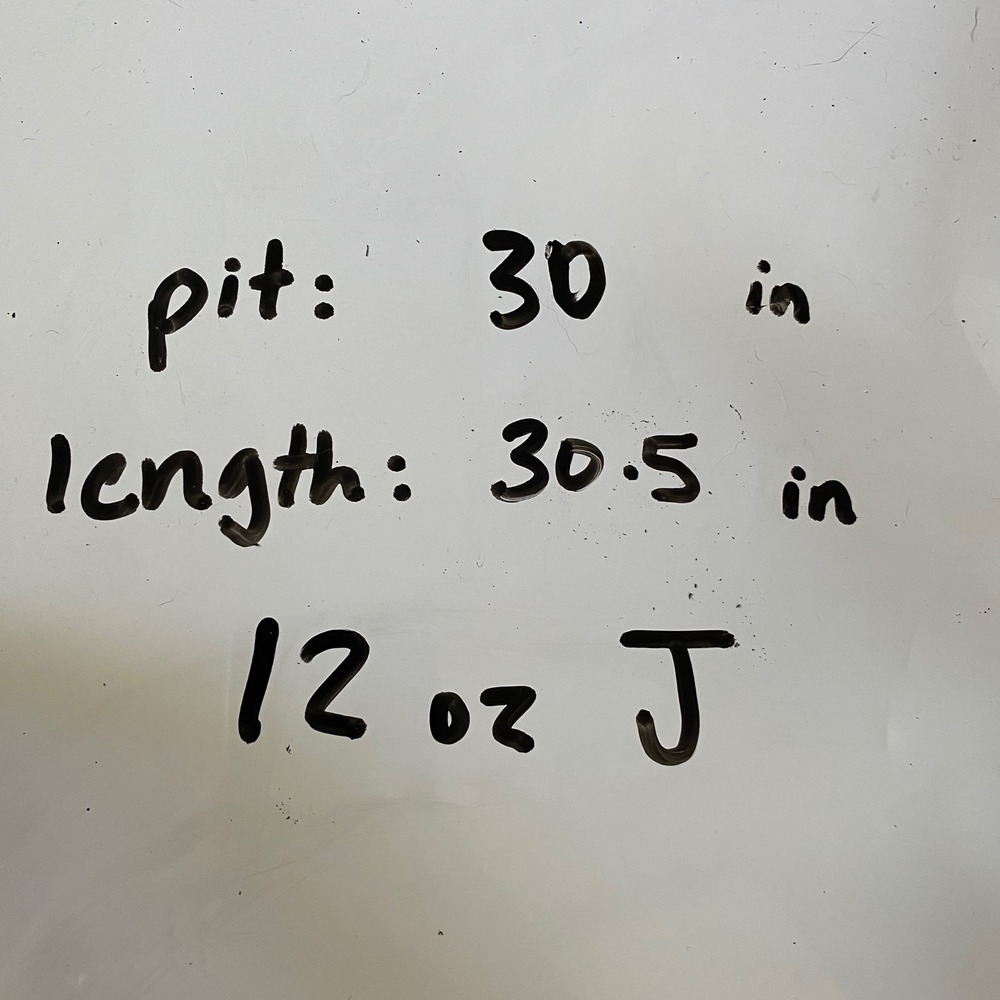 pit: 30 in
length: 30.5 in
12 oz J